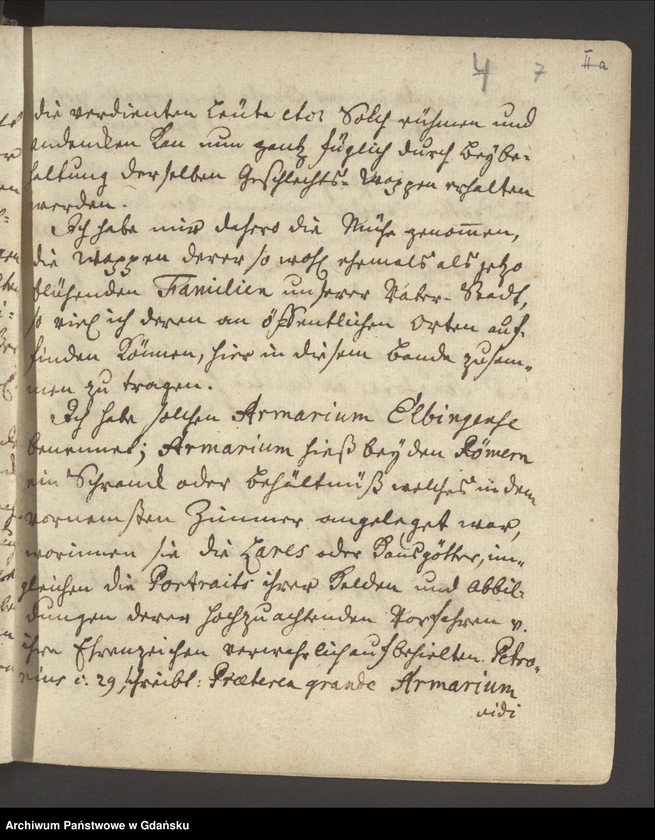 4 7 II a
die verdienten Leüte etc: Solch rühmen und
andencken kan nun gantz füglich durch beybe-
haltung derselben Geschlechts-Wappen erhalten
werden.
Ich habe mir dahero die Mühe genommen,
die Wappen derer so wohl ehemals als jetzo
blühenden Familien unserer Vater-Stadt,
so viel ich deren an öffentlichen Orten auf-
finden können, hier in diesem Bande zusam-
men zu tragen.
Ich habe solchen Armarium Elbingense
benennet; Armarium hieß bey den Römern
ein Schranck oder Behältnüß welches in dem
vornemsten Zimmer angeleget war,
worinnen sie die Lares oder Hausgötter, im-
gleichen die Portraits ihrer Helden und Abbil-
dungen derer hochzuachtenden Vorfahren u.
ihre Ehrenzeichen verwahrlich aufbehielten. Petro-
nius c. 29 schreibt: Præterea grande Armarium
vidi
Archiwum Państwowe w Gdańsku